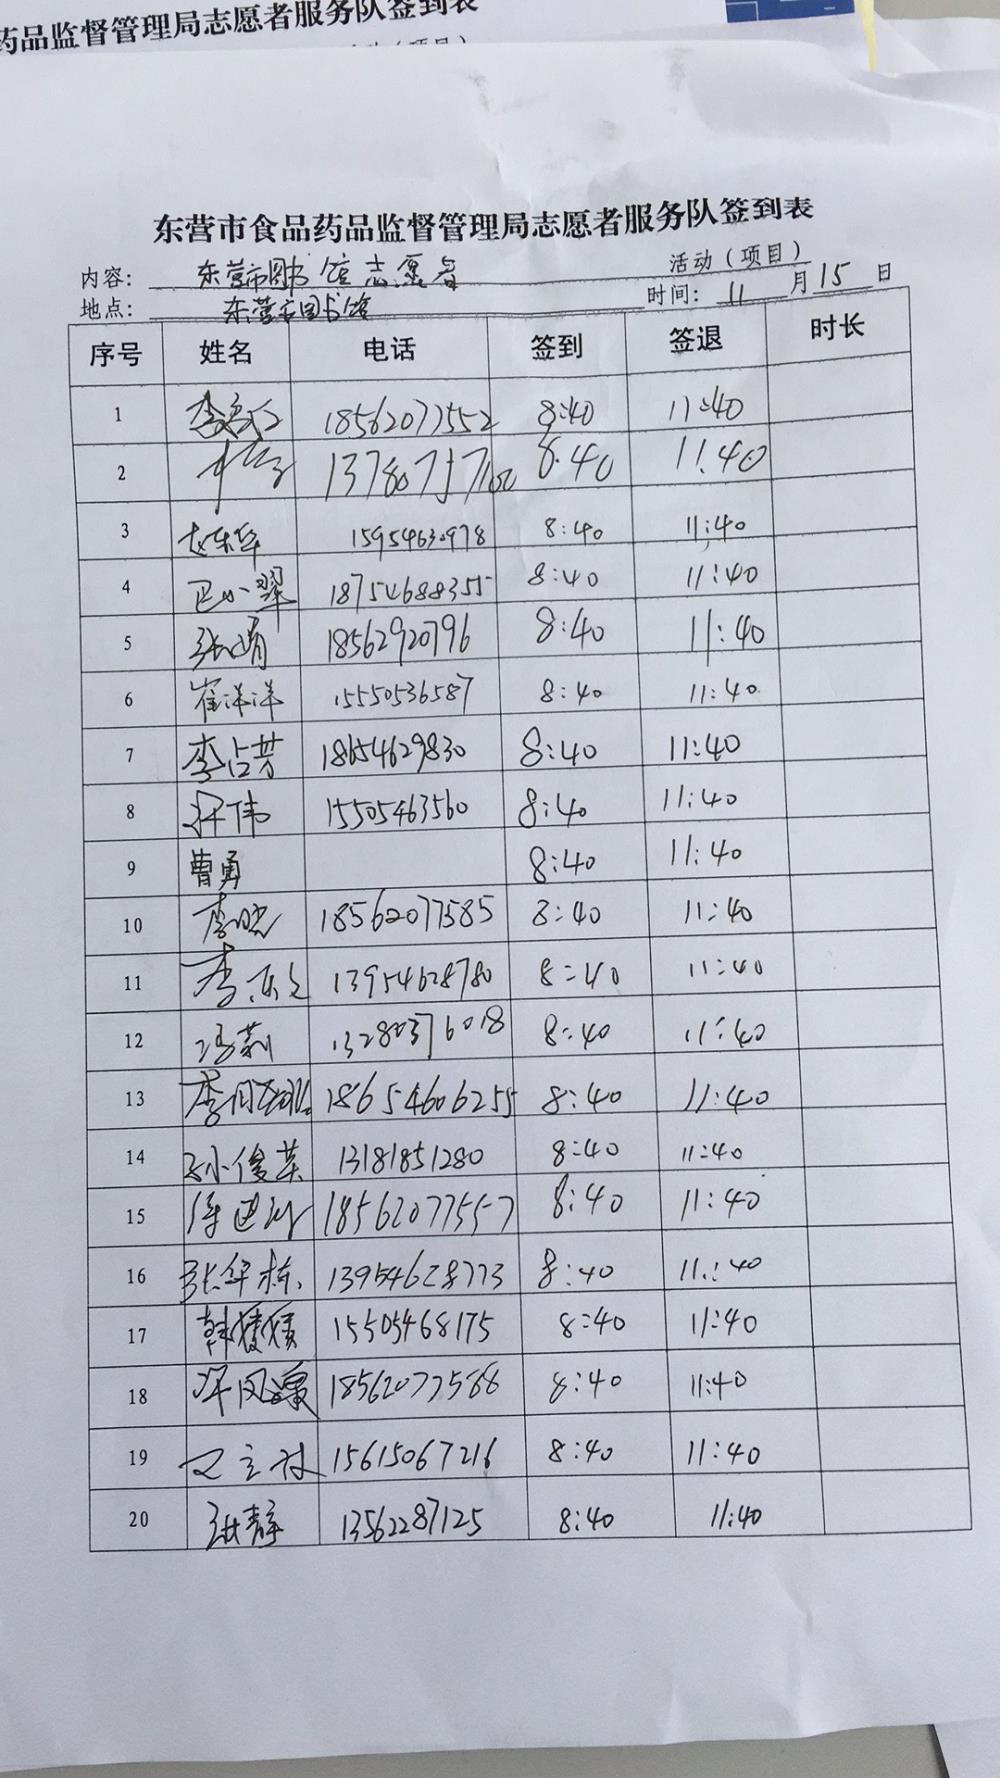 药品监督管理局志愿者服务队签到表
东营市食品药品监督管理局志愿者服务队签到表
内容: 东营市图书馆志愿者 活动(项目)
地点: 东营市图书馆 时间: 11月15日
序号 姓名 电话 签到 签退 时长
1 18562077552 8:40 11:40
2 8:40 11:40
3 赵东华 15954630978 8:40 11:40
4 巴小翠 18754688355 8:40 11:40
5 张娟 18562920796 8:40 11:40
6 崔洋洋 15550536587 8:40 11:40
7 李占芳 18654629830 8:40 11:40
8 伟 15505463560 8:40 11:40
9 曹勇 8:40 11:40
10 李晓 18562077585 8:40 11:40
11 李东文 13954628780 8:40 11:40
12 冯莉 13280376018 8:40 11:40
13 李 18654606255 8:40 11:40
14 孙俊英 13181851280 8:40 11:40
15 18562077557 8:40 11:40
16 张华栋 13954628773 8:40 11:40
17 韩媛媛 15505468175 8:40 11:40
18 18562077588 8:40 11:40
19 15615067216 8:40 11:40
20 张静 13562287125 8:40 11:40